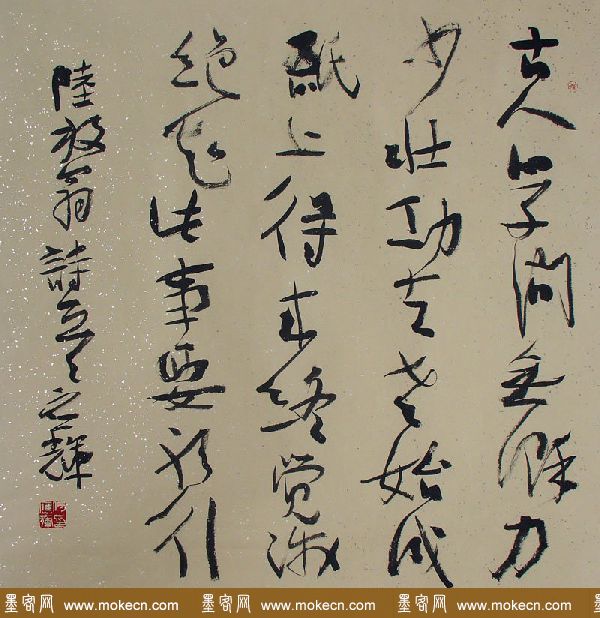 古人学问無餘力
少壮功夫老始成
紙上得来终觉浅
絶知此事要躬行
陸放翁詩 之輝
墨客网 www.mokecn.com 墨客网 www.mokecn.com 墨客网 www.mokecn.com